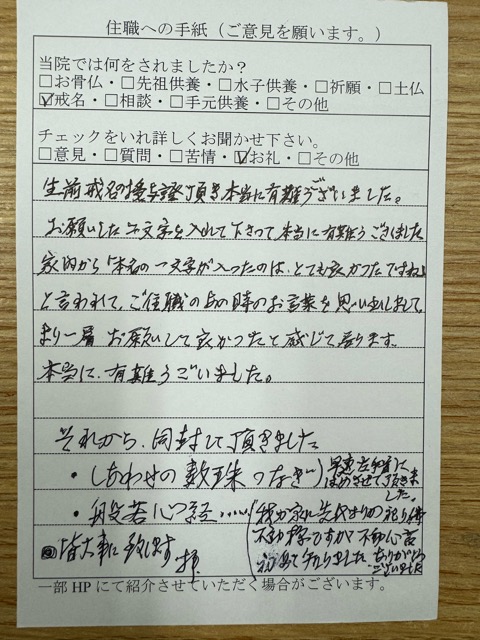 住職への手紙（ご意見を願います。）
当院では何をされましたか？
□お骨仏・□先祖供養・□水子供養・□祈願・□土仏
☑戒名・□相談・□手元供養・□その他
チェックをいれ詳しくお聞かせ下さい。
□意見・□質問・□苦情・☑お礼・□その他
生前戒名の授与證頂き本当に有難うございました。
お願いした文字を入れて下さって本当に有難うございました
家内から「本名の一文字が入ったのは、とても良かったですね」
と言われて、ご住職の あの時のお言葉を思い出しまして、
より一層 お願いして良かったと感じて居ります。
本当に、有難うございました。
それから、同封して頂きました
・しあわせの数珠つなぎ 早速左手首にはめさせて頂きました。
・般若心経‥‥ 我が家に先代よりの祀り佛
不動様ですが不動心言
初めて知りました ありがとうございました
皆大事に致します 拝
一部HPにて紹介させていただく場合がございます。